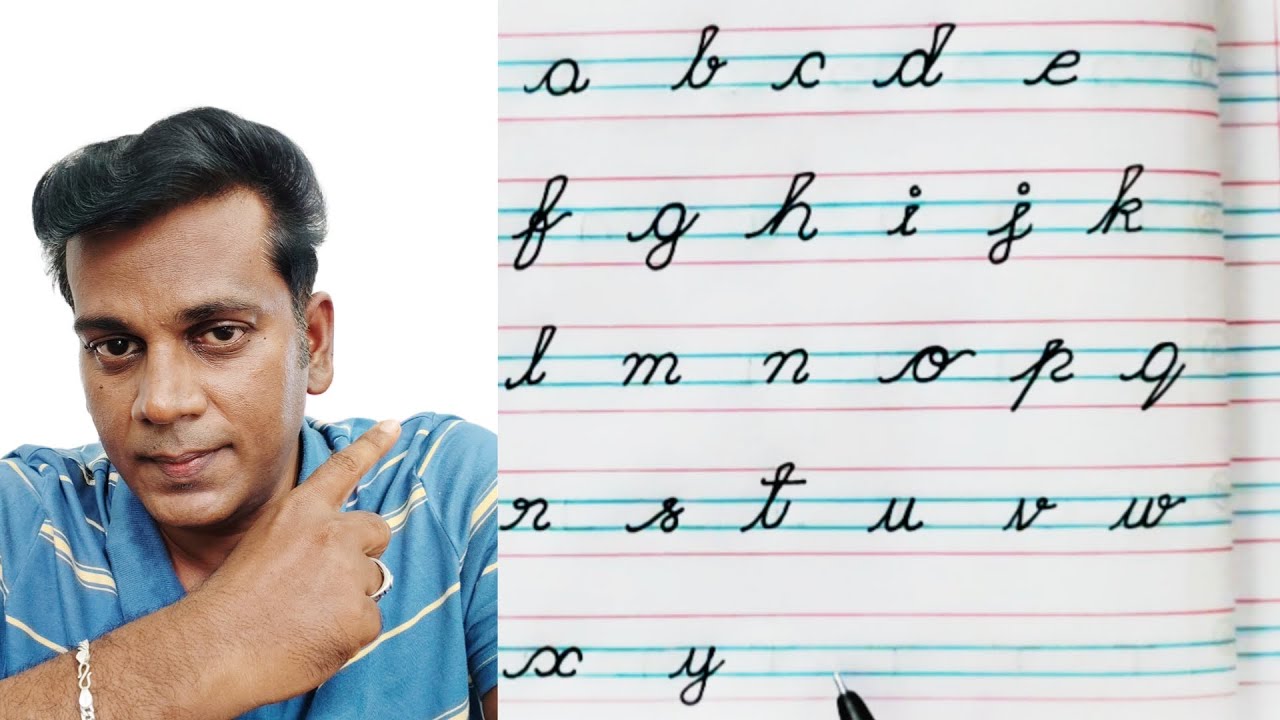 a b c d e
f g h i j k
l m n o p q
r s t u v w
x y